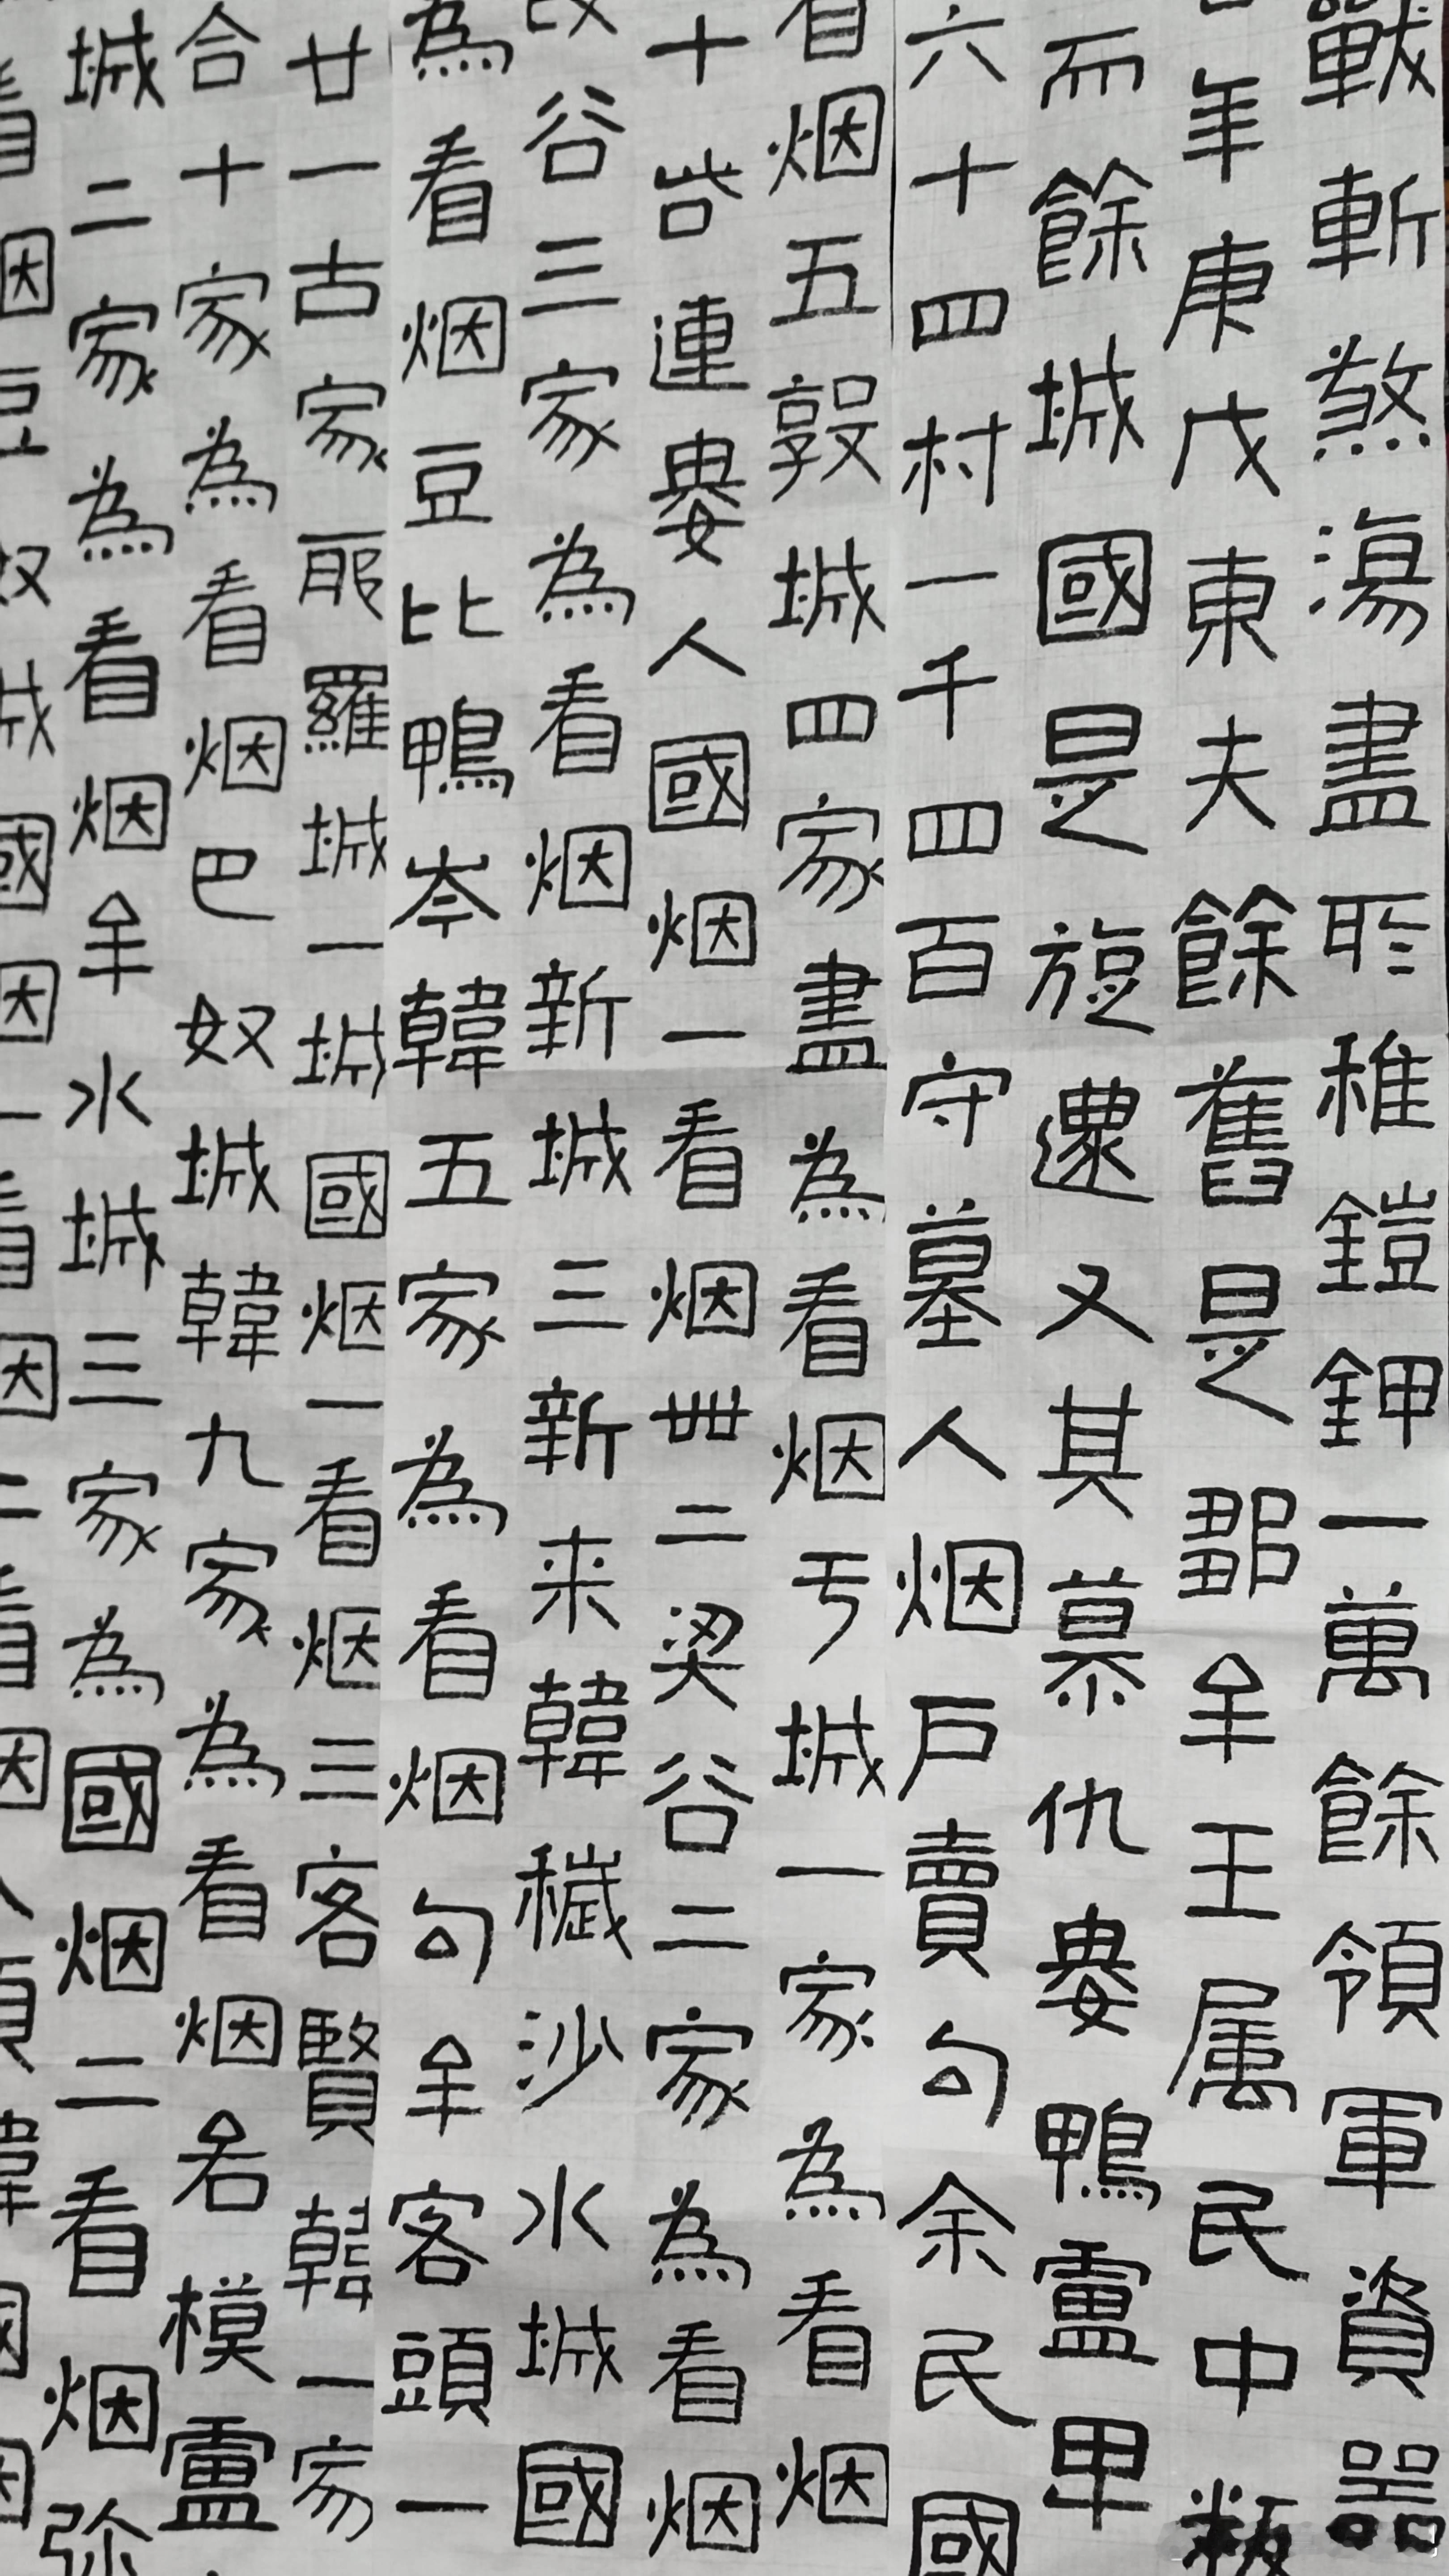 戰斬煞湯盡所稚鎧鉀一萬餘領軍資器
年庚戌東夫餘舊是鄒牟王属民中叛
而餘城國是旋還又其慕仇婁鴨盧卑
六十四村一千四百守墓人烟戶賣句余民國
看烟五敦城四家盡為看烟于城一家為看烟
十呰連婁人國烟一看烟卌二梁谷二家為看烟
谷三家為看烟新城三新来韓穢沙水城國
為看烟豆比鴨岑韓五家為看烟句牟客頭一
廿一古家耶羅城一城國烟一看烟三客賢韓一家
合十家為看烟巴奴城韓九家為看烟若模盧
城二家為看烟牟水城三家為國烟二看烟弥
看烟豆奴城國烟一看烟二看烟人須韓國烟